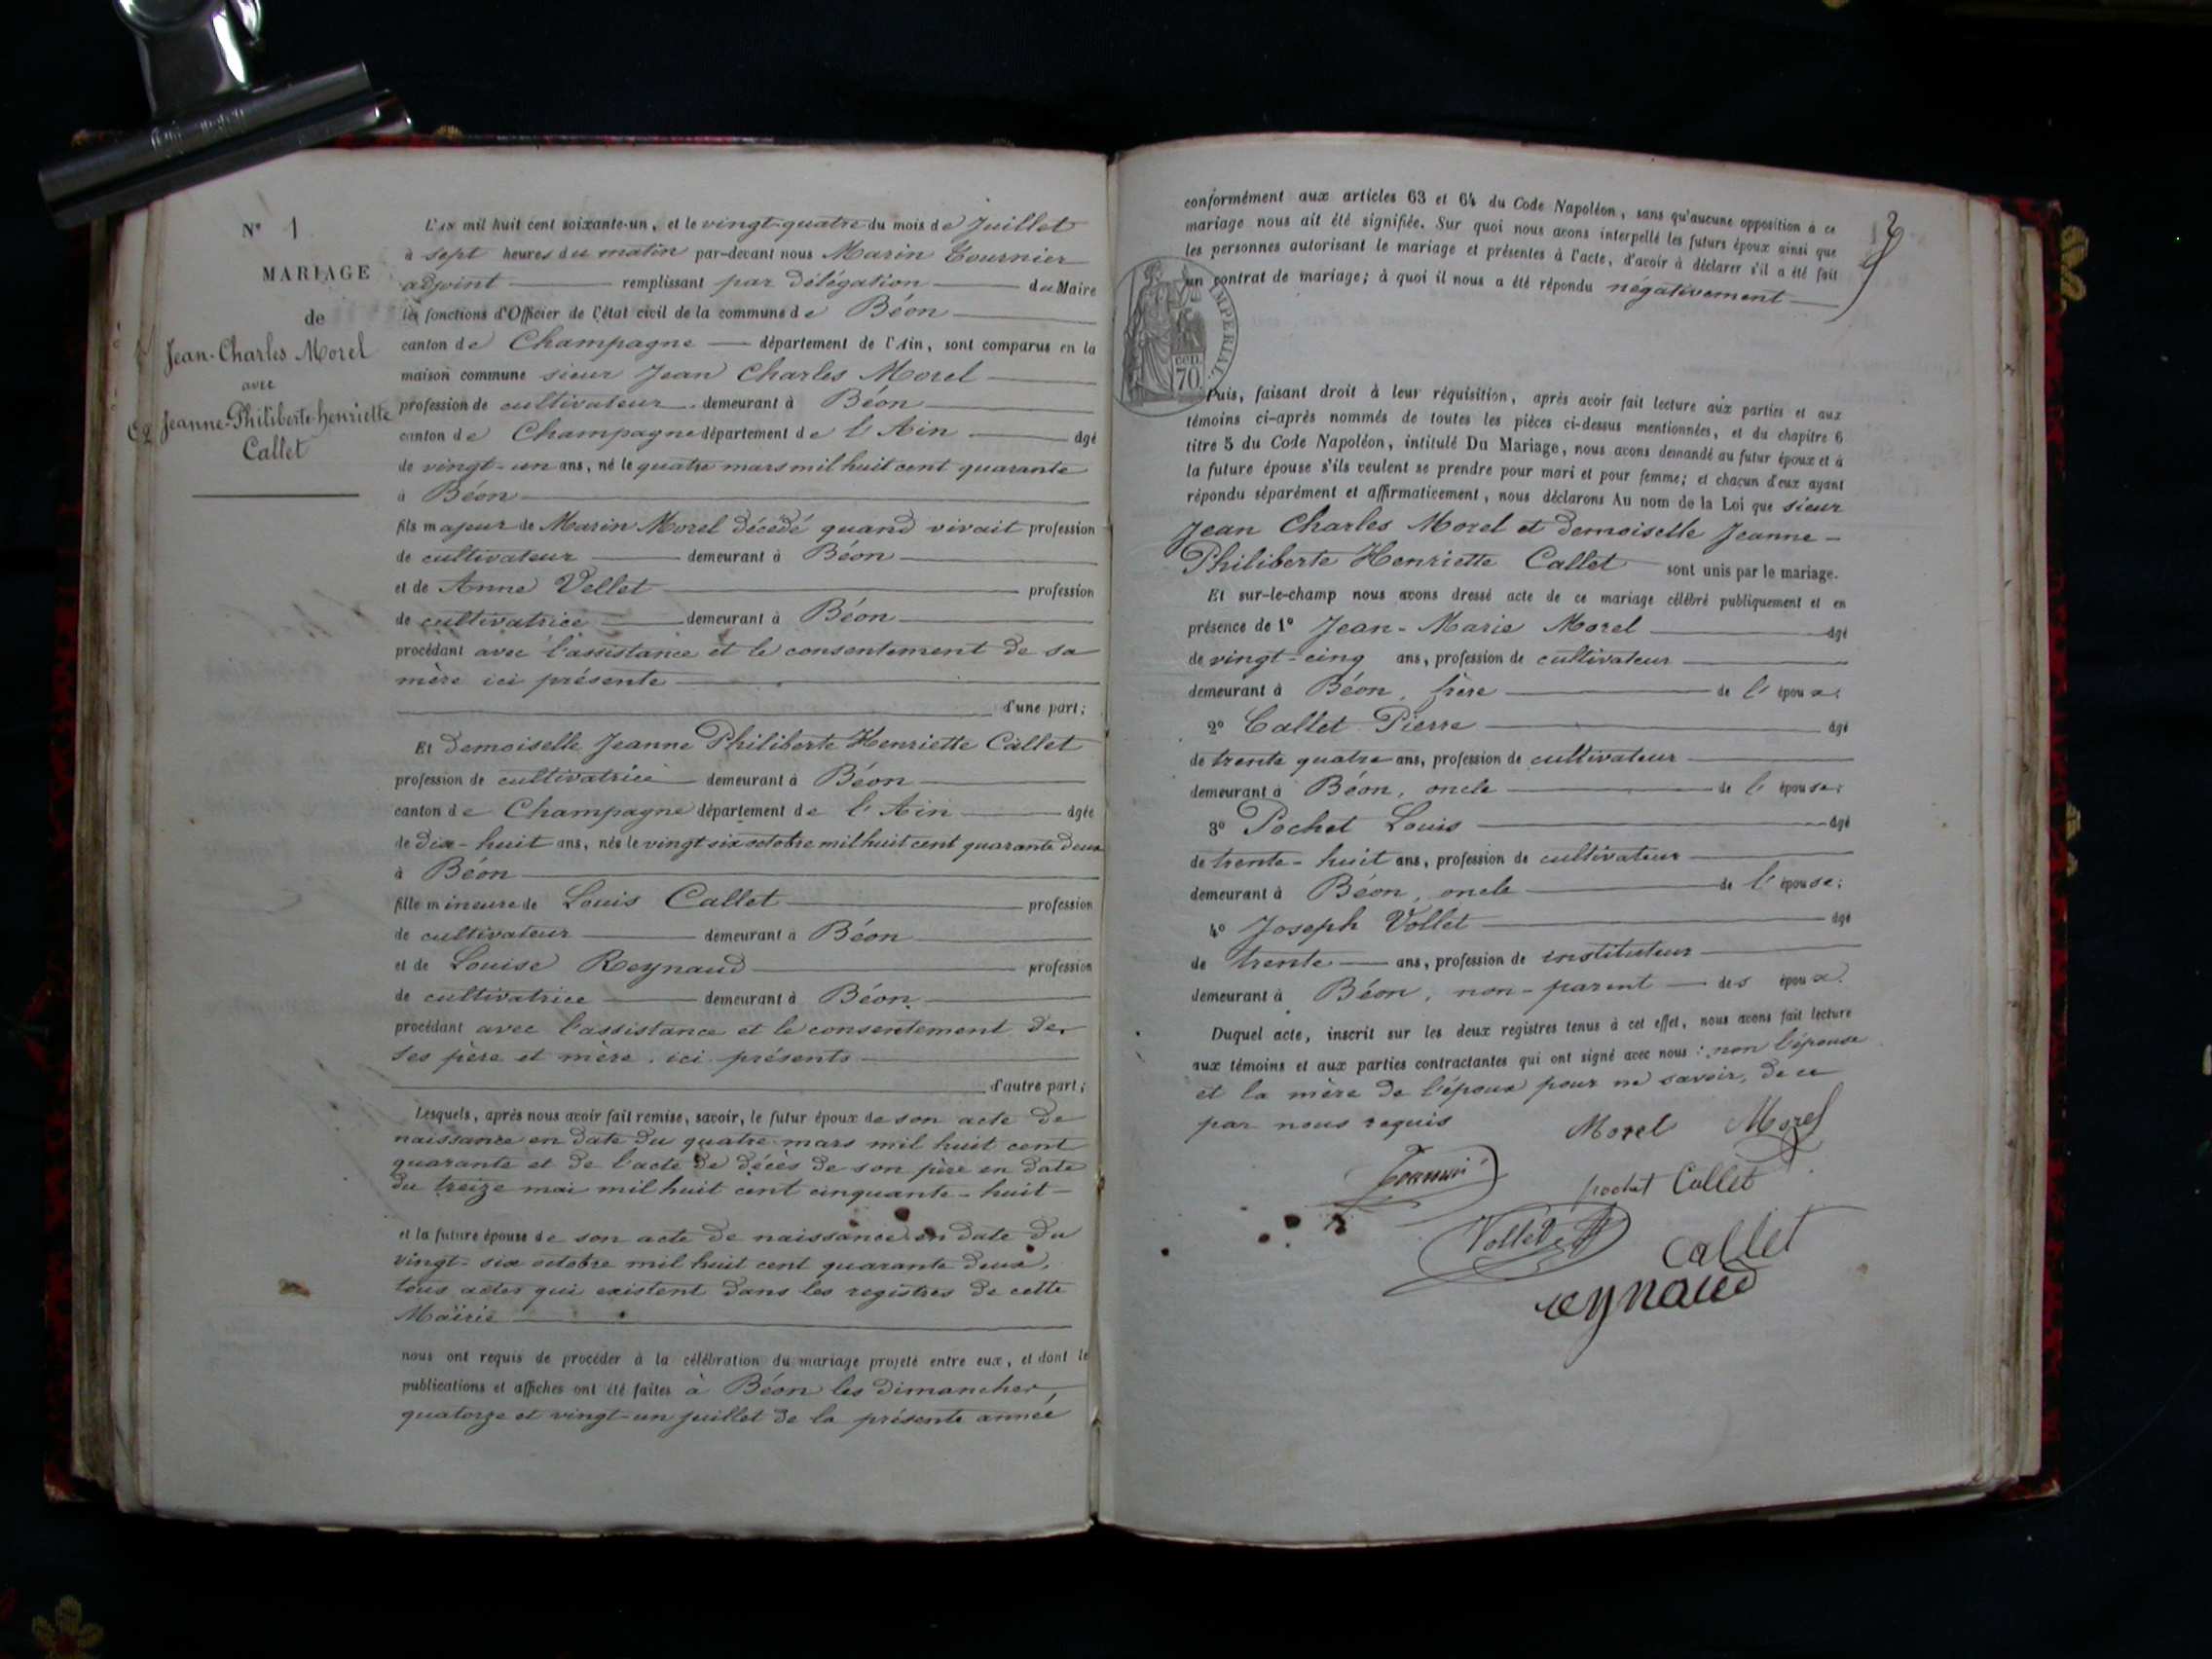 N° 1
MARIAGE
de
Jean-Charles Morel
avec
Jeanne-Philiberte-henriette
Callet
L'AN mil huit cent soixante-un, et le vingt-quatre du mois de Juillet
à sept heures du matin par-devant nous Marin Tournier
adjoint remplissant par délégation du Maire
les fonctions d'Officier de l'état civil de la commune de Béon
canton de Champagne département de l'Ain, sont comparus en la
maison commune sieur Jean Charles Morel
profession de cultivateur demeurant à Béon
canton de Champagne département de l'Ain âgé
de vingt-un ans, né le quatre mars mil huit cent quarante
à Béon
fils majeur de Marin Morel décédé quand vivait profession
de cultivateur demeurant à Béon
et de Anne Vellet profession
de cultivatrice demeurant à Béon
procédant avec l'assistance et le consentement de sa
mère ici présente
d'une part;
Et demoiselle Jeanne Philiberte Henriette Callet
profession de cultivatrice demeurant à Béon
canton de Champagne département de l'Ain âgée
de dix-huit ans, née le vingt six octobre mil huit cent quarante deux
à Béon
fille mineure de Louis Callet profession
de cultivateur demeurant à Béon
et de Louise Reynaud profession
de cultivatrice demeurant à Béon
procédant avec l'assistance et le consentement de
ses père et mère, ici présents
d'autre part;
Lesquels, après nous avoir fait remise, savoir, le futur époux de son acte de
naissance en date du quatre mars mil huit cent
quarante et de l'acte de décès de son père en date
du treize mai mil huit cent cinquante-huit
et la future épouse de son acte de naissance en date du
vingt-six octobre mil huit cent quarante deux,
tous actes qui existent dans les registres de cette
Mairie
nous ont requis de procéder à la célébration du mariage projeté entre eux, et dont le
publications et affiches ont été faites à Béon les dimanches
quatorze et vingt-un juillet de la présente année
conformément aux articles 63 et 64 du Code Napoléon, sans qu'aucune opposition à ce
mariage nous ait été signifiée. Sur quoi nous avons interpellé les futurs époux ainsi que
les personnes autorisant le mariage et présentes à l'acte, d'avoir à déclarer s'il a été fait
un contrat de mariage; à quoi il nous a été répondu négativement
IMPERIAL
cen.
70.
Puis, faisant droit à leur réquisition, après avoir fait lecture aux parties et aux
témoins ci-après nommés de toutes les pièces ci-dessus mentionnées, et du chapitre 6
titre 5 du Code Napoléon, intitulé Du Mariage, nous avons demandé au futur époux et à
la future épouse s'ils veulent se prendre pour mari et pour femme; et chacun d'eux ayant
répondu séparément et affirmativement, nous déclarons Au nom de la Loi que sieur
Jean Charles Morel et demoiselle Jeanne-
Philiberte Henriette Callet sont unis par le mariage.
Et sur-le-champ nous avons dressé acte de ce mariage célébré publiquement et en
présence de 1° Jean-Marie Morel âgé
de vingt-cinq ans, profession de cultivateur
demeurant à Béon, frère de l'époux;
2° Callet Pierre âgé
de trente quatre ans, profession de cultivateur
demeurant à Béon, oncle de l'épouse;
3° Pochet Louis âgé
de trente-huit ans, profession de cultivateur
demeurant à Béon, oncle de l'épouse;
4° Joseph Vollet âgé
de trente ans, profession de instituteur
demeurant à Béon, non-parent des époux.
Duquel acte, inscrit sur les deux registres tenus à cet effet, nous avons fait lecture
aux témoins et aux parties contractantes qui ont signé avec nous : non l'épouse
et la mère de l'époux pour ne savoir, de ce
par nous requis
Morel Morel
Tournier
pochet Callet
Vollet
Callet
reynaud